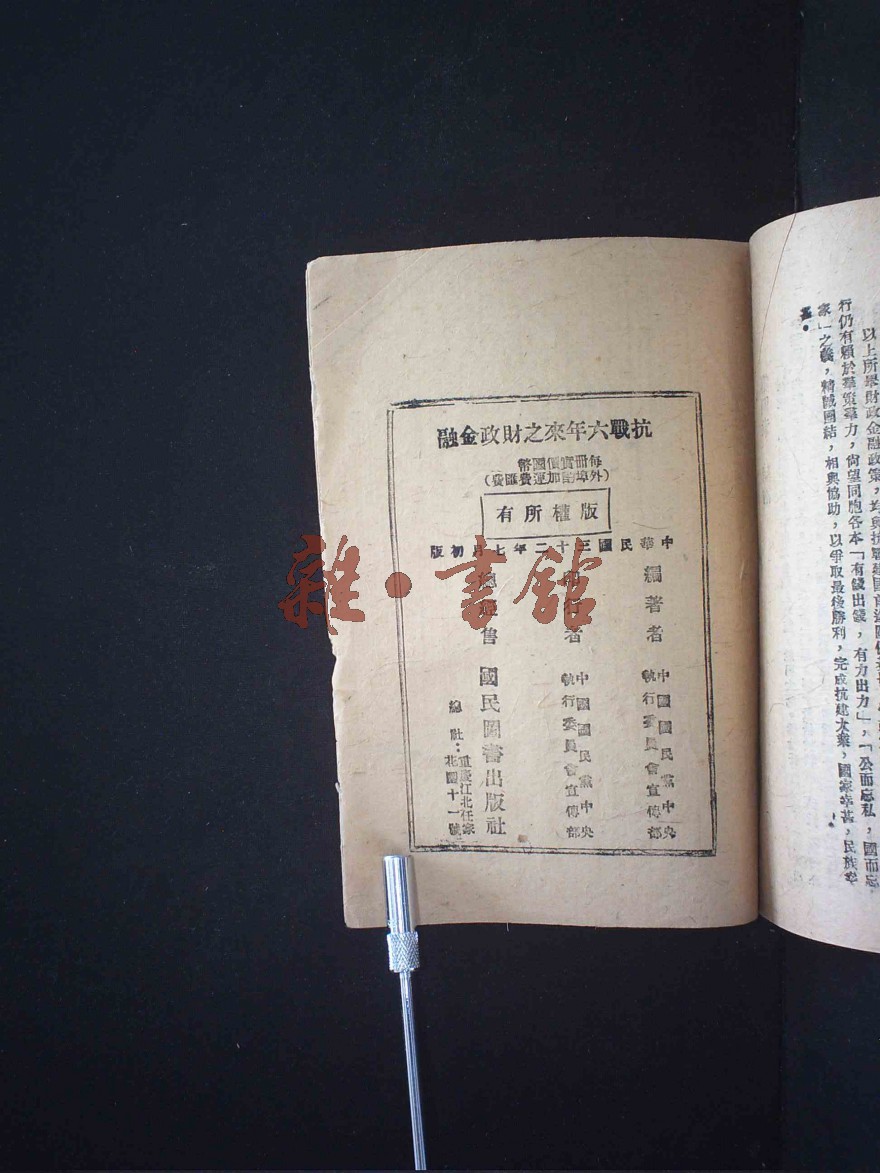 以上所舉財政金融政策，均與抗戰建國前途關係
行仍有賴於羣策羣力，尙望同胞各本「有錢出錢，有力出力」，「公而忘私，國而忘
家」之義，精誠團結，相與協助，以爭取最後勝利，完成抗建大業，國家幸甚，民族幸
甚。
融金政財之來年六戰抗
幣國價實冊每
（費匯費運加酌埠外）
有所權版
版初月七年二十三國民華中
編著者　中國國民黨中央執行委員會宣傳部
印行者　中國國民黨中央執行委員會宣傳部
總經售　國民圖書出版社
總社：重慶江北任家花園十一號
雜·書館